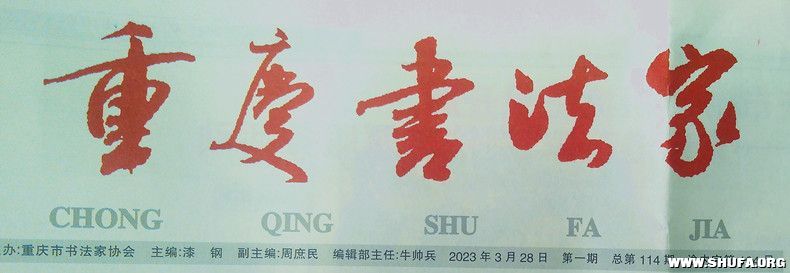 重慶書法家
CHONG QING SHU FA JIA
办:重庆市书法家协会 主编:漆 钢 副主编:周庶民 编辑部主任:牛帅兵 2023年3月28日 第一期 总第114期
WWW.SHUFA.ORG